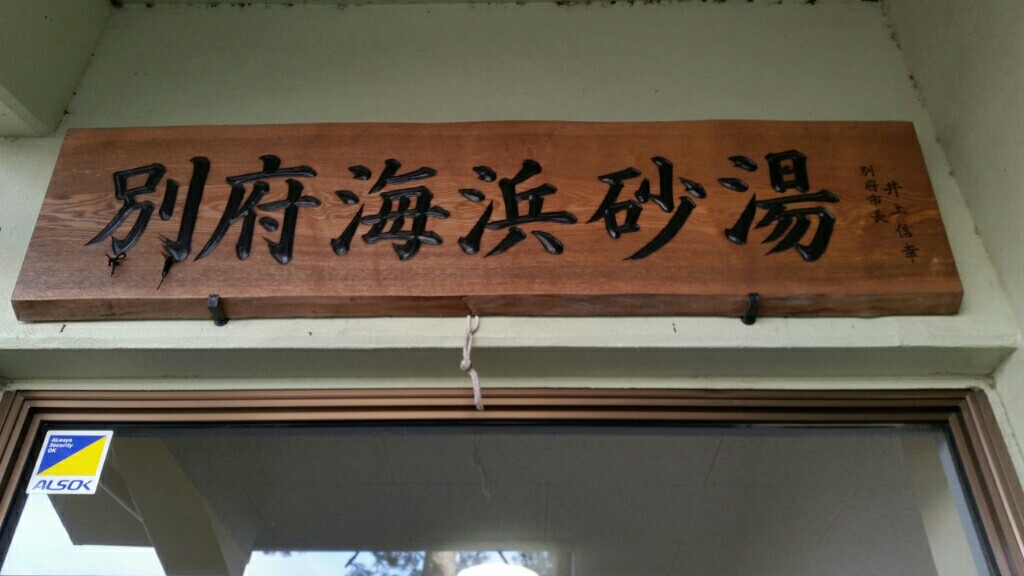 別府海浜砂湯
別府市長
井上信幸
ALways
Security
OK
ALSOK